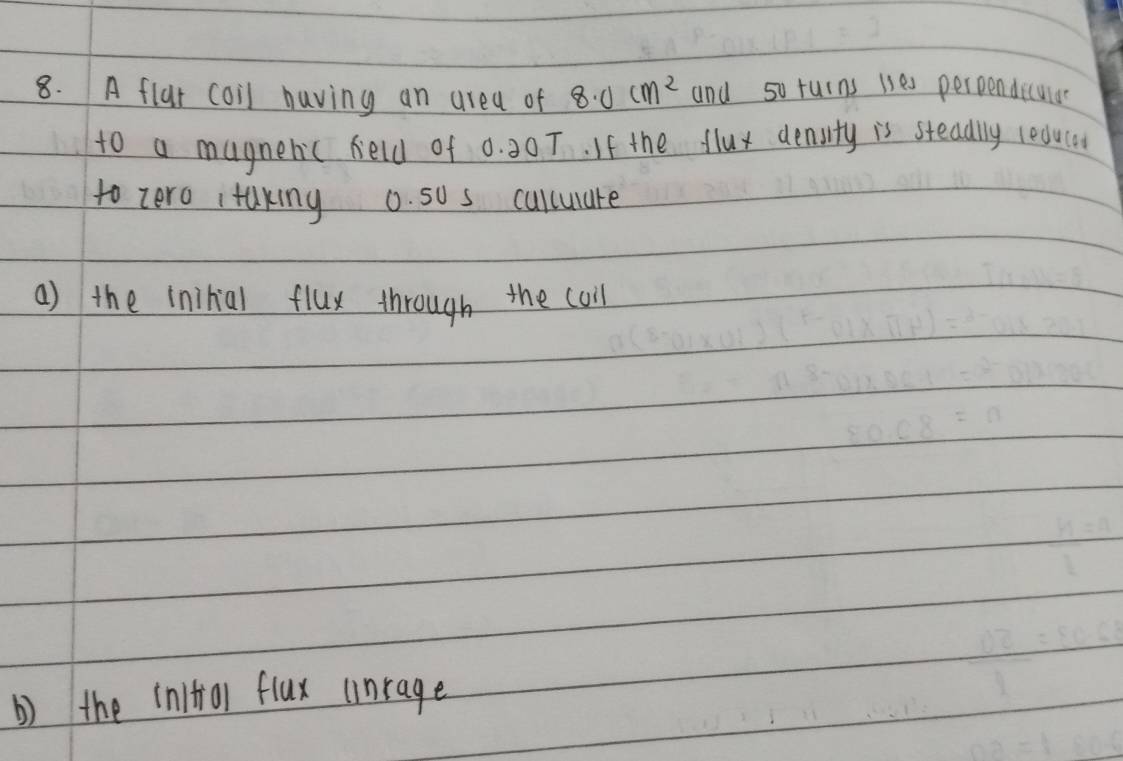 8. A flat coil having an area of 8.0 cm² and 50 turns lies perpendicular
to a magnetic field of 0.20T. If the flux density is steadily reduced
to zero, taking 0.50 s calculate
a) the initial flux through the coil
b) the initial flux linkage